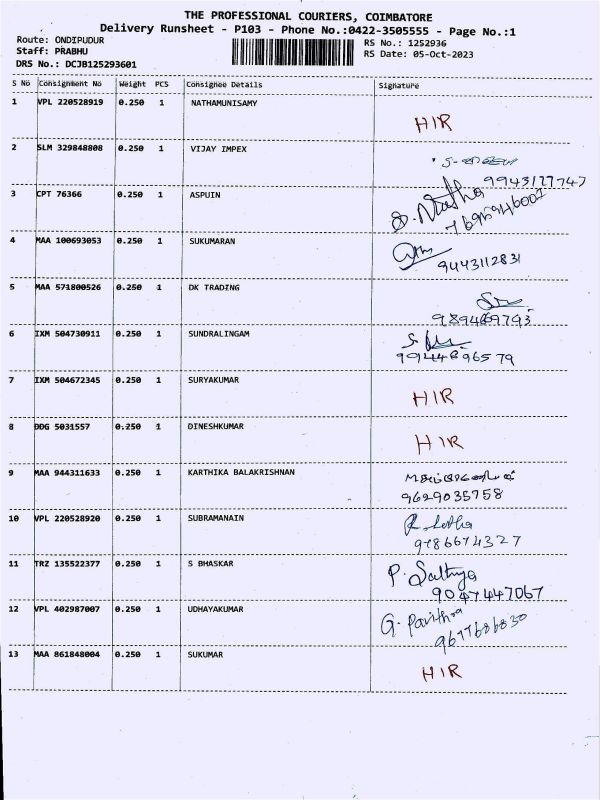 THE PROFESSIONAL COURIERS, COIMBATORE
Delivery Runsheet - P103 - Phone No.:0422-3505555 - Page No.:1
Route: ONDIPUDUR
RS No.: 1252936
Staff: PRABHU
RS Date: 05-Oct-2023
DRS No.: DCJB125293601
S No Consignment No Weight PCS Consignee Details Signature
1 VPL 220528919 0.250 1 NATHAMUNISAMY
HIR
2 SLM 329848808 0.250 1 VIJAY IMPEX
9943177747
3 CPT 76366 0.250 1 ASPUIN
4 MAA 100693053 0.250 1 SUKUMARAN
9443112831
5 MAA 571800526 0.250 1 DK TRADING
6 IXM 504730911 0.250 1 SUNDRALINGAM
7 IXM 504672345 0.250 1 SURYAKUMAR
HIR
8 DDG 5031557 0.250 1 DINESHKUMAR
HIR
9 MAA 944311633 0.250 1 KARTHIKA BALAKRISHNAN
9629035758
10 VPL 220528920 0.250 1 SUBRAMANAIN
9786674327
11 TRZ 135522377 0.250 1 S BHASKAR
P. Sathya
9047447067
12 VPL 402987007 0.250 1 UDHAYAKUMAR
G. Pavithra
9677686830
13 MAA 861848004 0.250 1 SUKUMAR
HIR